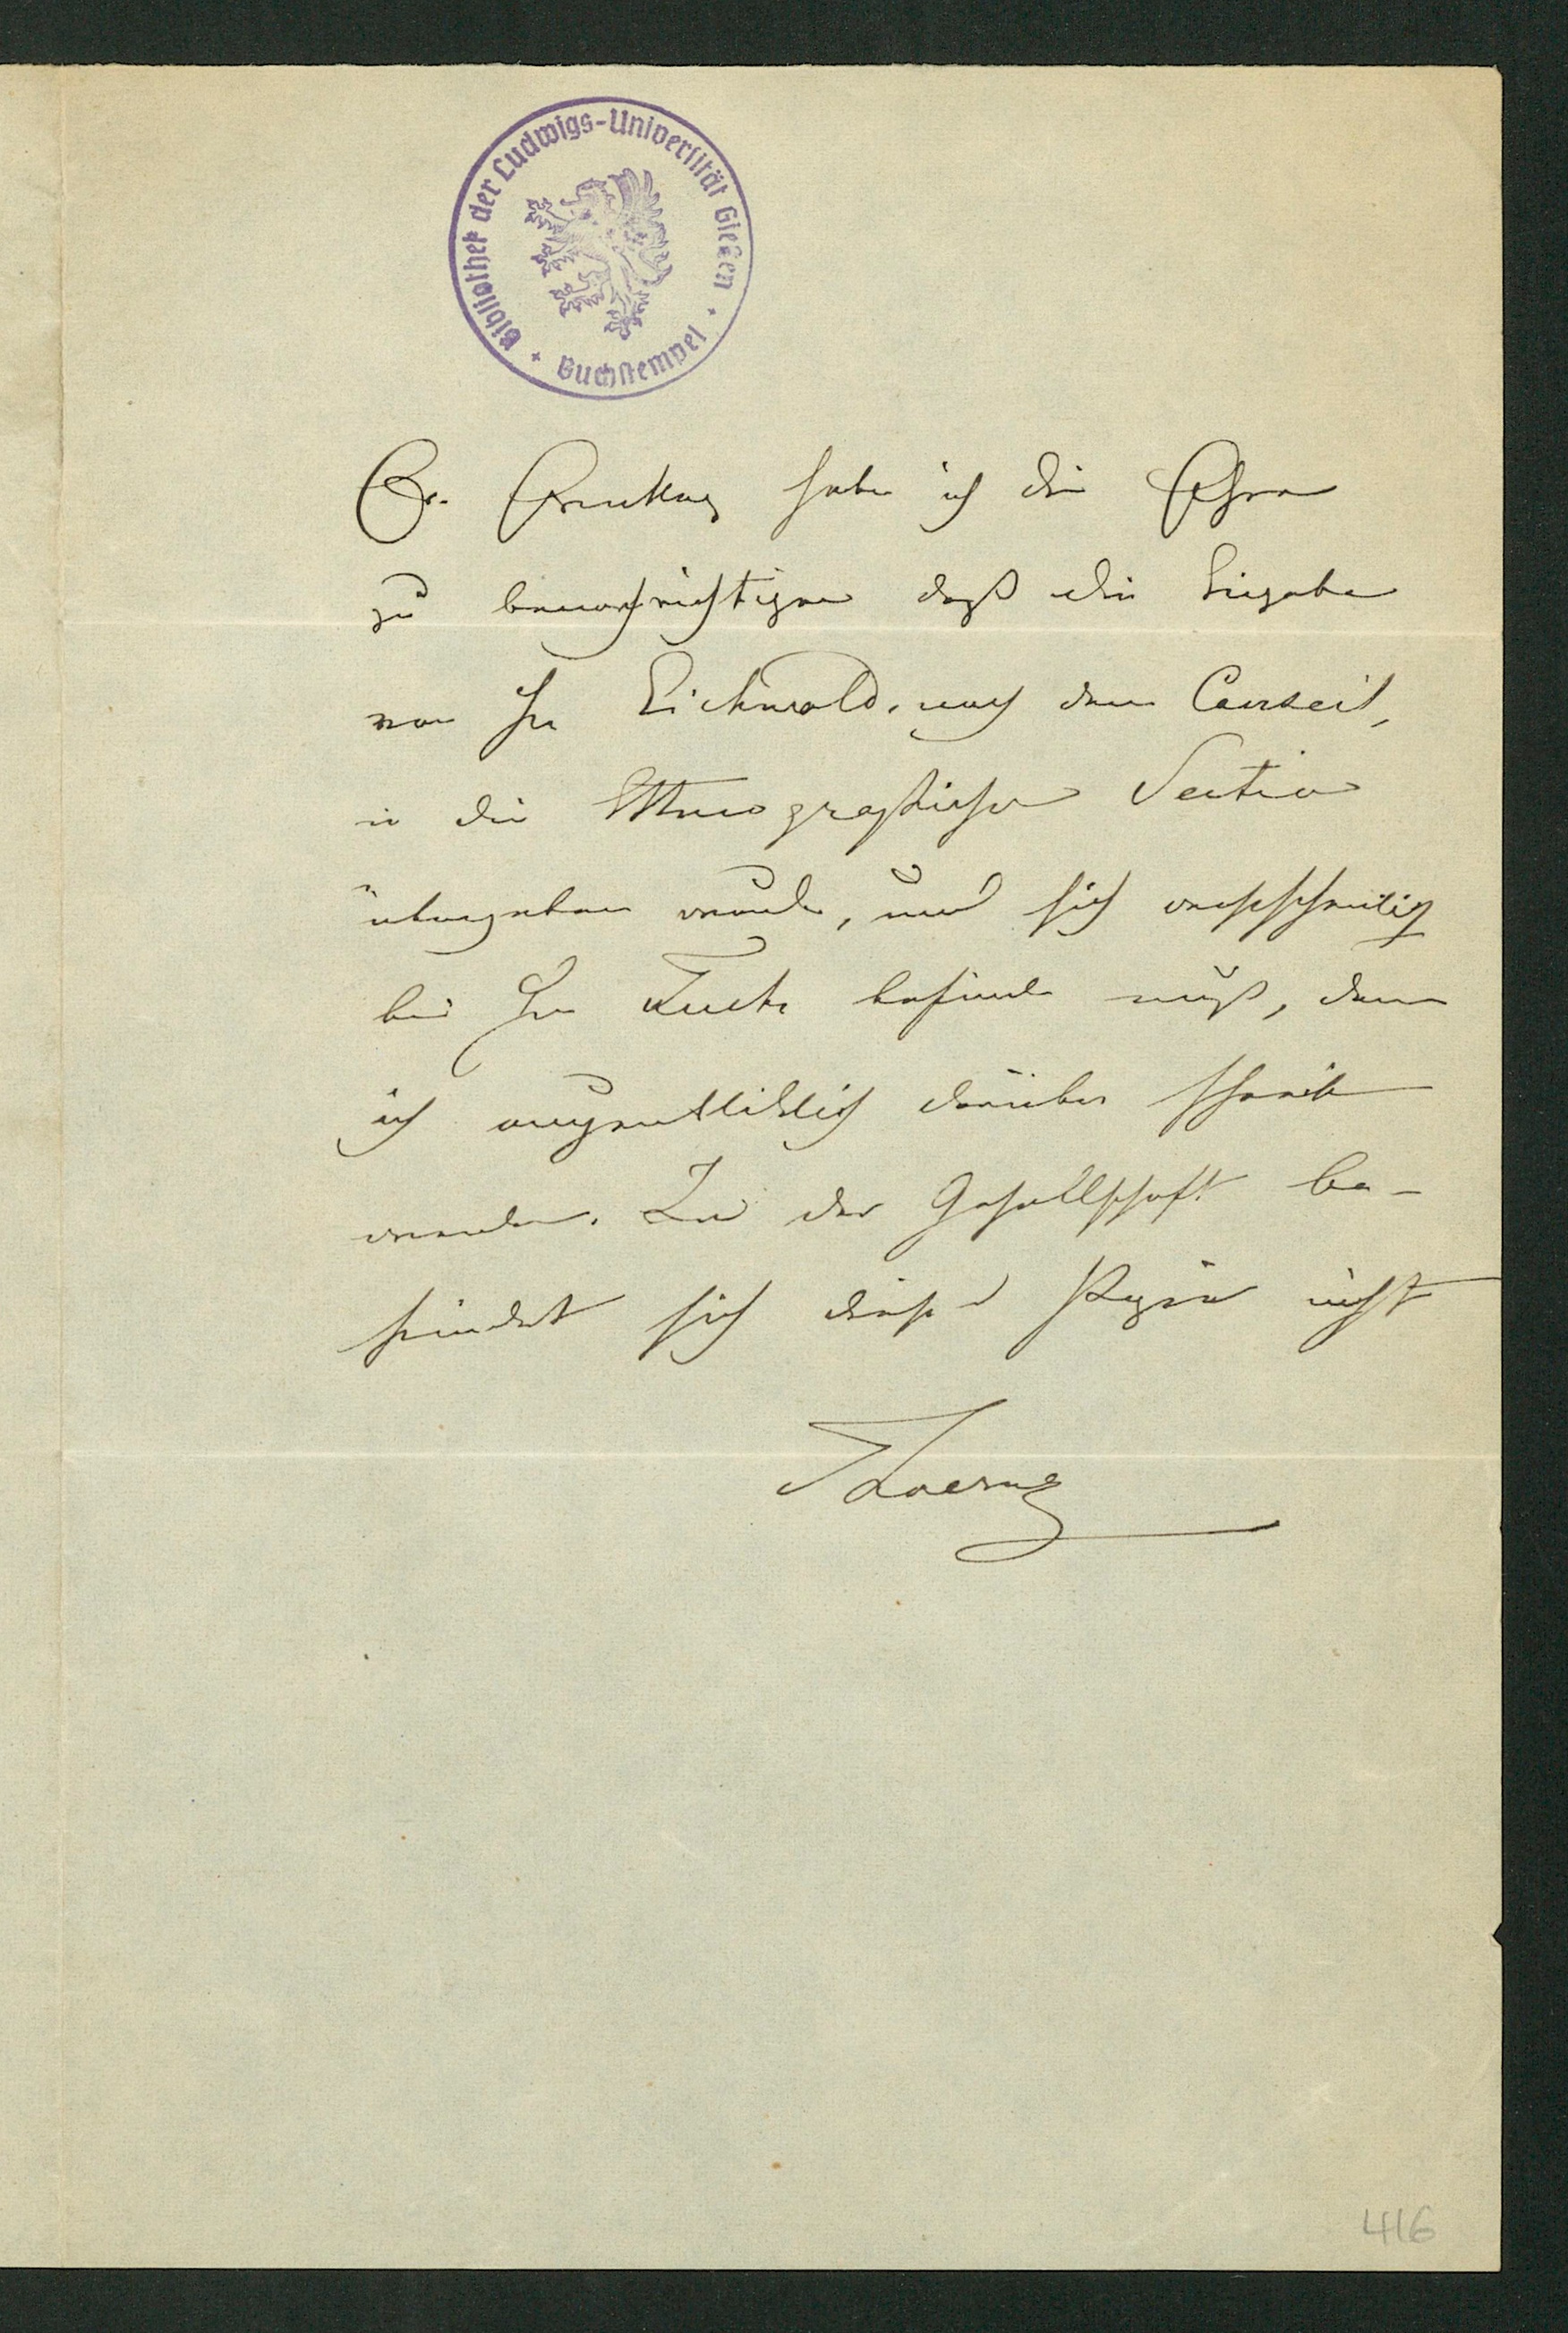 Bibliothek der Ludwigs-Universität Gießen
Buchstempel
Er. habe ich die Ehre
zu benachrichtigen daß die Eingabe
von Hn Eichwald, nach dem Conseil,
in die Ethnographische Section
übergeben wurde, und sich
bei Hn befinden muß, dem
ich augenblicklich darüber schreiben
werde. In der Gesellschaft be-
findet sich diese nicht
416